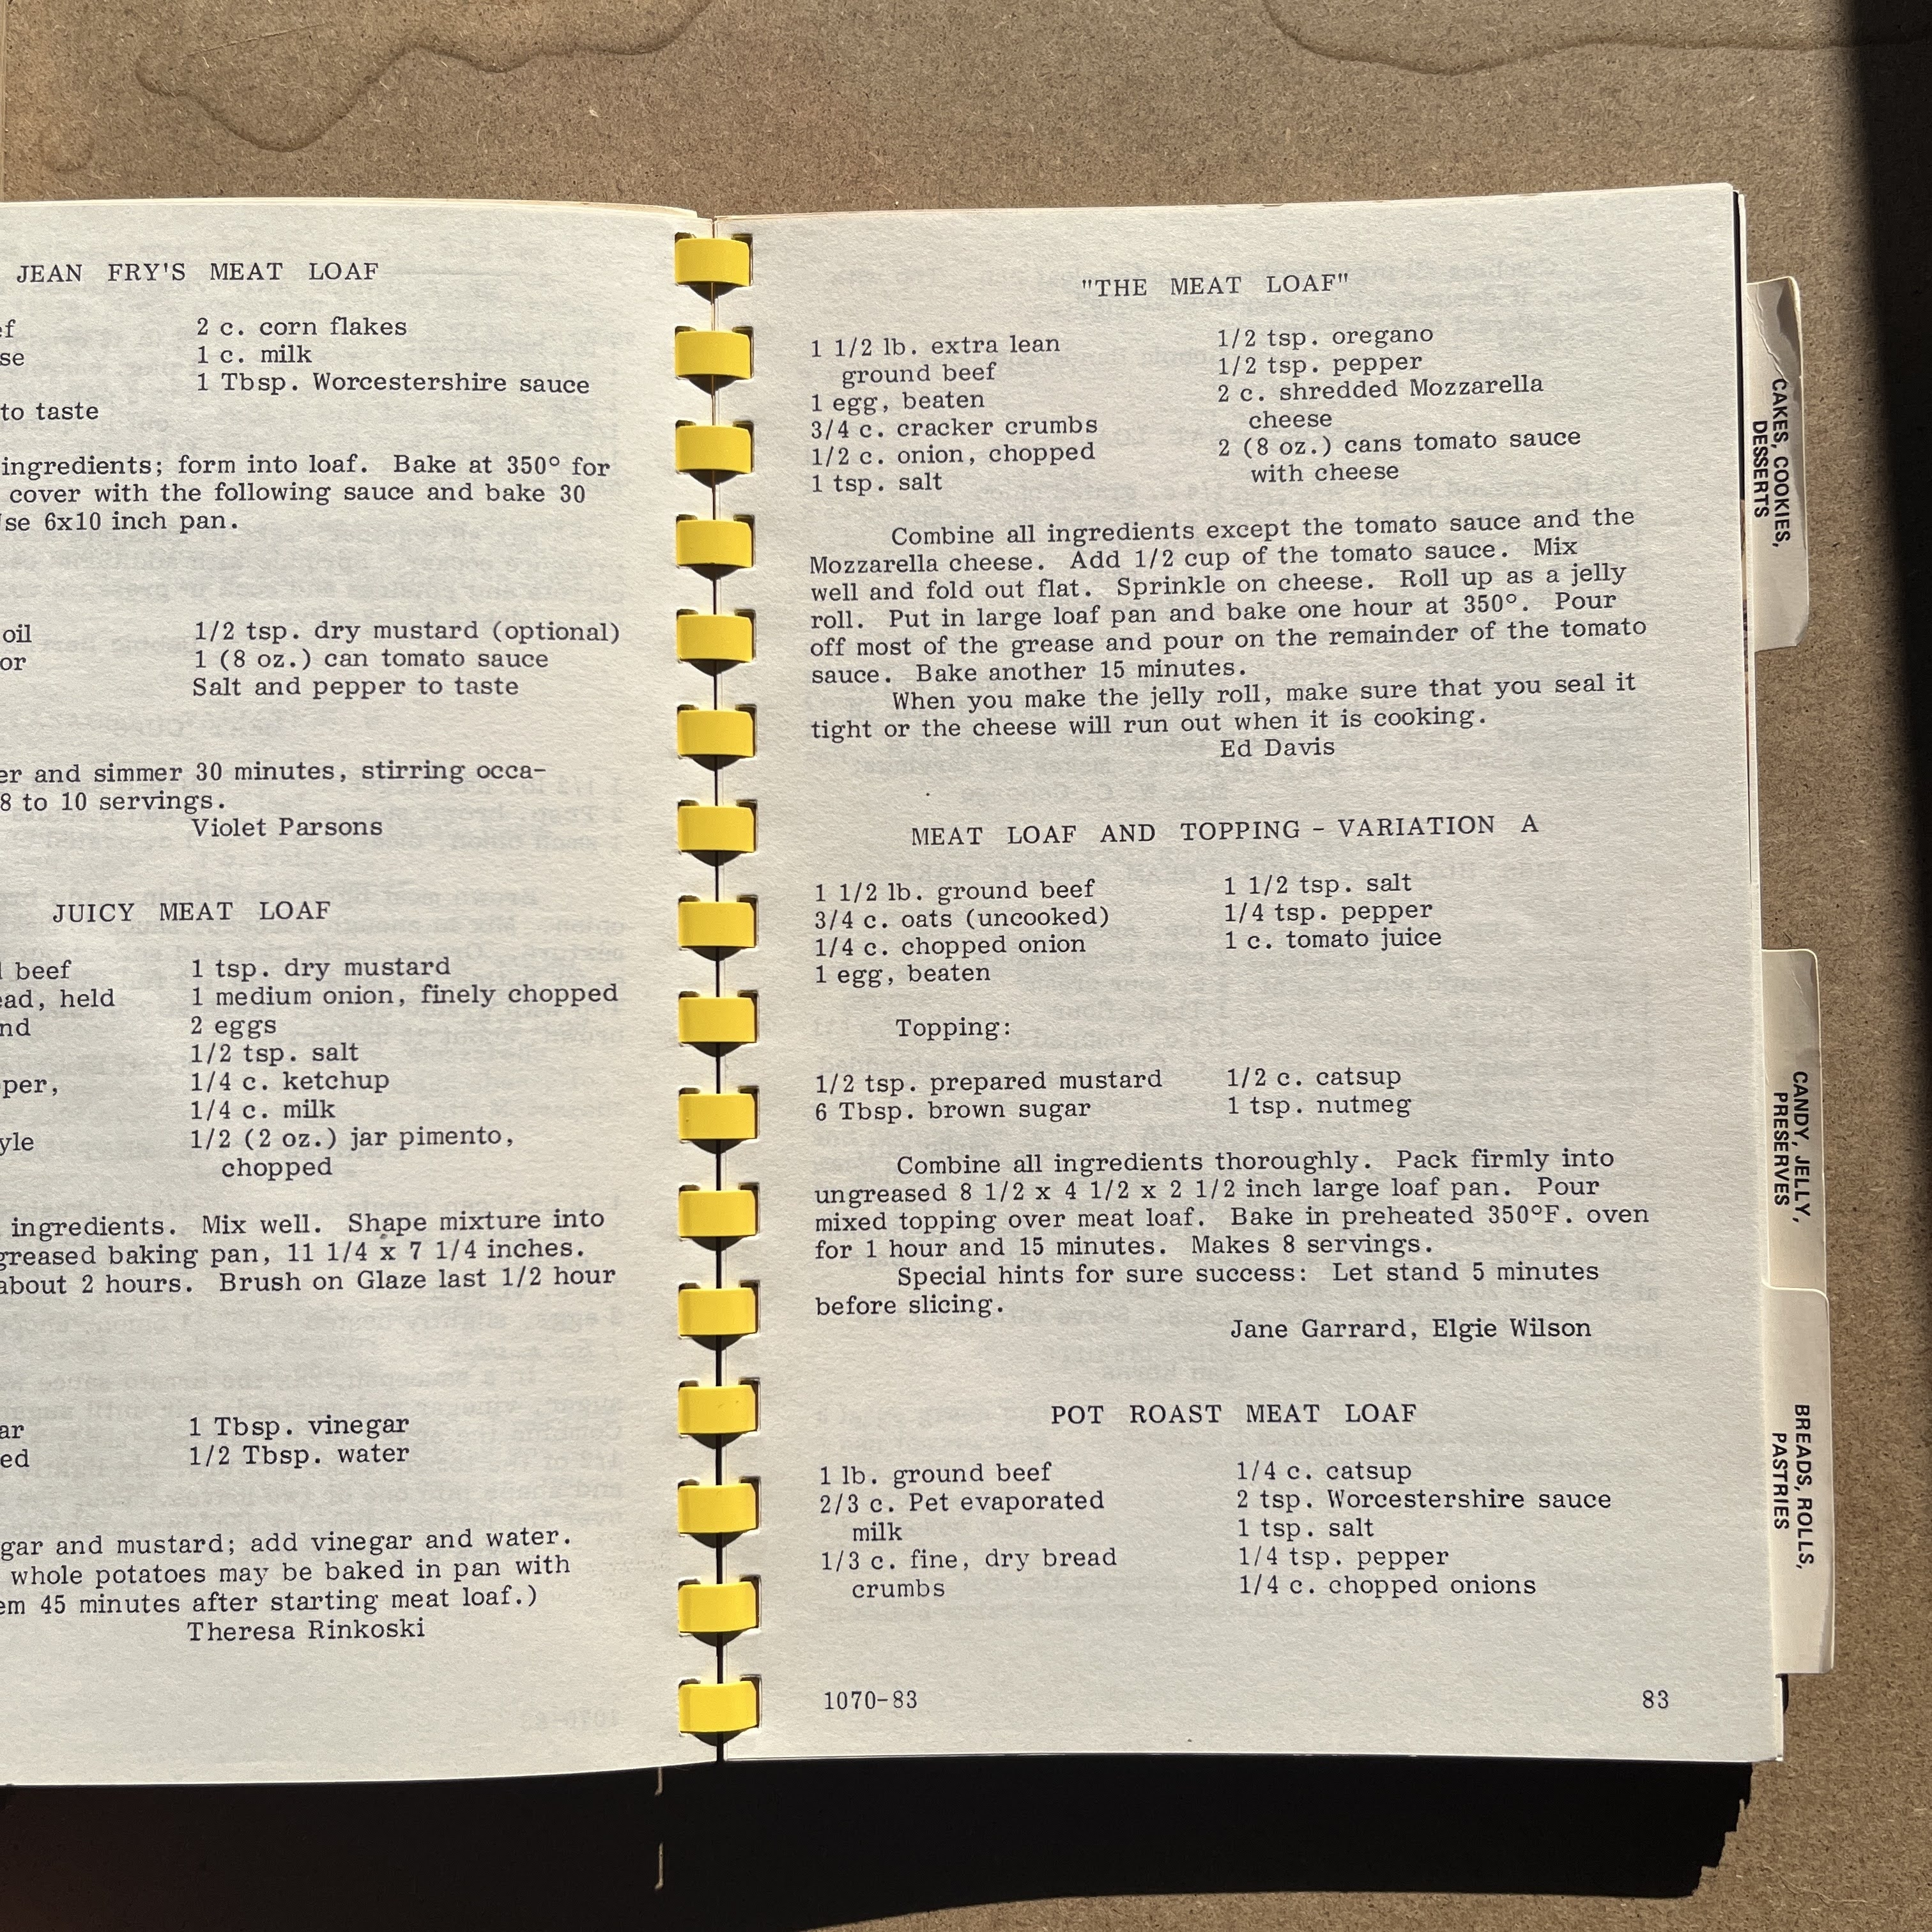 JEAN FRY'S MEAT LOAF
2 c. corn flakes
1 c. milk
1 Tbsp. Worcestershire sauce
to taste
ingredients; form into loaf. Bake at 350° for
cover with the following sauce and bake 30
6x10 inch pan.
oil
or
1/2 tsp. dry mustard (optional)
1 (8 oz.) can tomato sauce
Salt and pepper to taste
and simmer 30 minutes, stirring occa-
8 to 10 servings.
Violet Parsons
JUICY MEAT LOAF
beef
held
1 tsp. dry mustard
1 medium onion, finely chopped
2 eggs
1/2 tsp. salt
1/4 c. ketchup
1/4 c. milk
1/2 (2 oz.) jar pimento,
chopped
ingredients. Mix well. Shape mixture into
greased baking pan, 11 1/4 x 7 1/4 inches.
about 2 hours. Brush on Glaze last 1/2 hour
1 Tbsp. vinegar
1/2 Tbsp. water
and mustard; add vinegar and water.
whole potatoes may be baked in pan with
45 minutes after starting meat loaf.)
Theresa Rinkoski
"THE MEAT LOAF"
1 1/2 lb. extra lean
ground beef
1 egg, beaten
3/4 c. cracker crumbs
1/2 c. onion, chopped
1 tsp. salt
1/2 tsp. oregano
1/2 tsp. pepper
2 c. shredded Mozzarella
cheese
2 (8 oz.) cans tomato sauce
with cheese
Combine all ingredients except the tomato sauce and the
Mozzarella cheese. Add 1/2 cup of the tomato sauce. Mix
well and fold out flat. Sprinkle on cheese. Roll up as a jelly
roll. Put in large loaf pan and bake one hour at 350°. Pour
off most of the grease and pour on the remainder of the tomato
sauce. Bake another 15 minutes.
When you make the jelly roll, make sure that you seal it
tight or the cheese will run out when it is cooking.
Ed Davis
MEAT LOAF AND TOPPING - VARIATION A
1 1/2 lb. ground beef
3/4 c. oats (uncooked)
1/4 c. chopped onion
1 egg, beaten
1 1/2 tsp. salt
1/4 tsp. pepper
1 c. tomato juice
Topping:
1/2 tsp. prepared mustard
6 Tbsp. brown sugar
1/2 c. catsup
1 tsp. nutmeg
Combine all ingredients thoroughly. Pack firmly into
ungreased 8 1/2 x 4 1/2 x 2 1/2 inch large loaf pan. Pour
mixed topping over meat loaf. Bake in preheated 350°F. oven
for 1 hour and 15 minutes. Makes 8 servings.
Special hints for sure success: Let stand 5 minutes
before slicing.
Jane Garrard, Elgie Wilson
POT ROAST MEAT LOAF
1 lb. ground beef
2/3 c. Pet evaporated
milk
1/3 c. fine, dry bread
crumbs
1/4 c. catsup
2 tsp. Worcestershire sauce
1 tsp. salt
1/4 tsp. pepper
1/4 c. chopped onions
1070-83
83
CAKES, COOKIES,
DESSERTS
CANDY, JELLY,
PRESERVES
BREADS, ROLLS,
PASTRIES